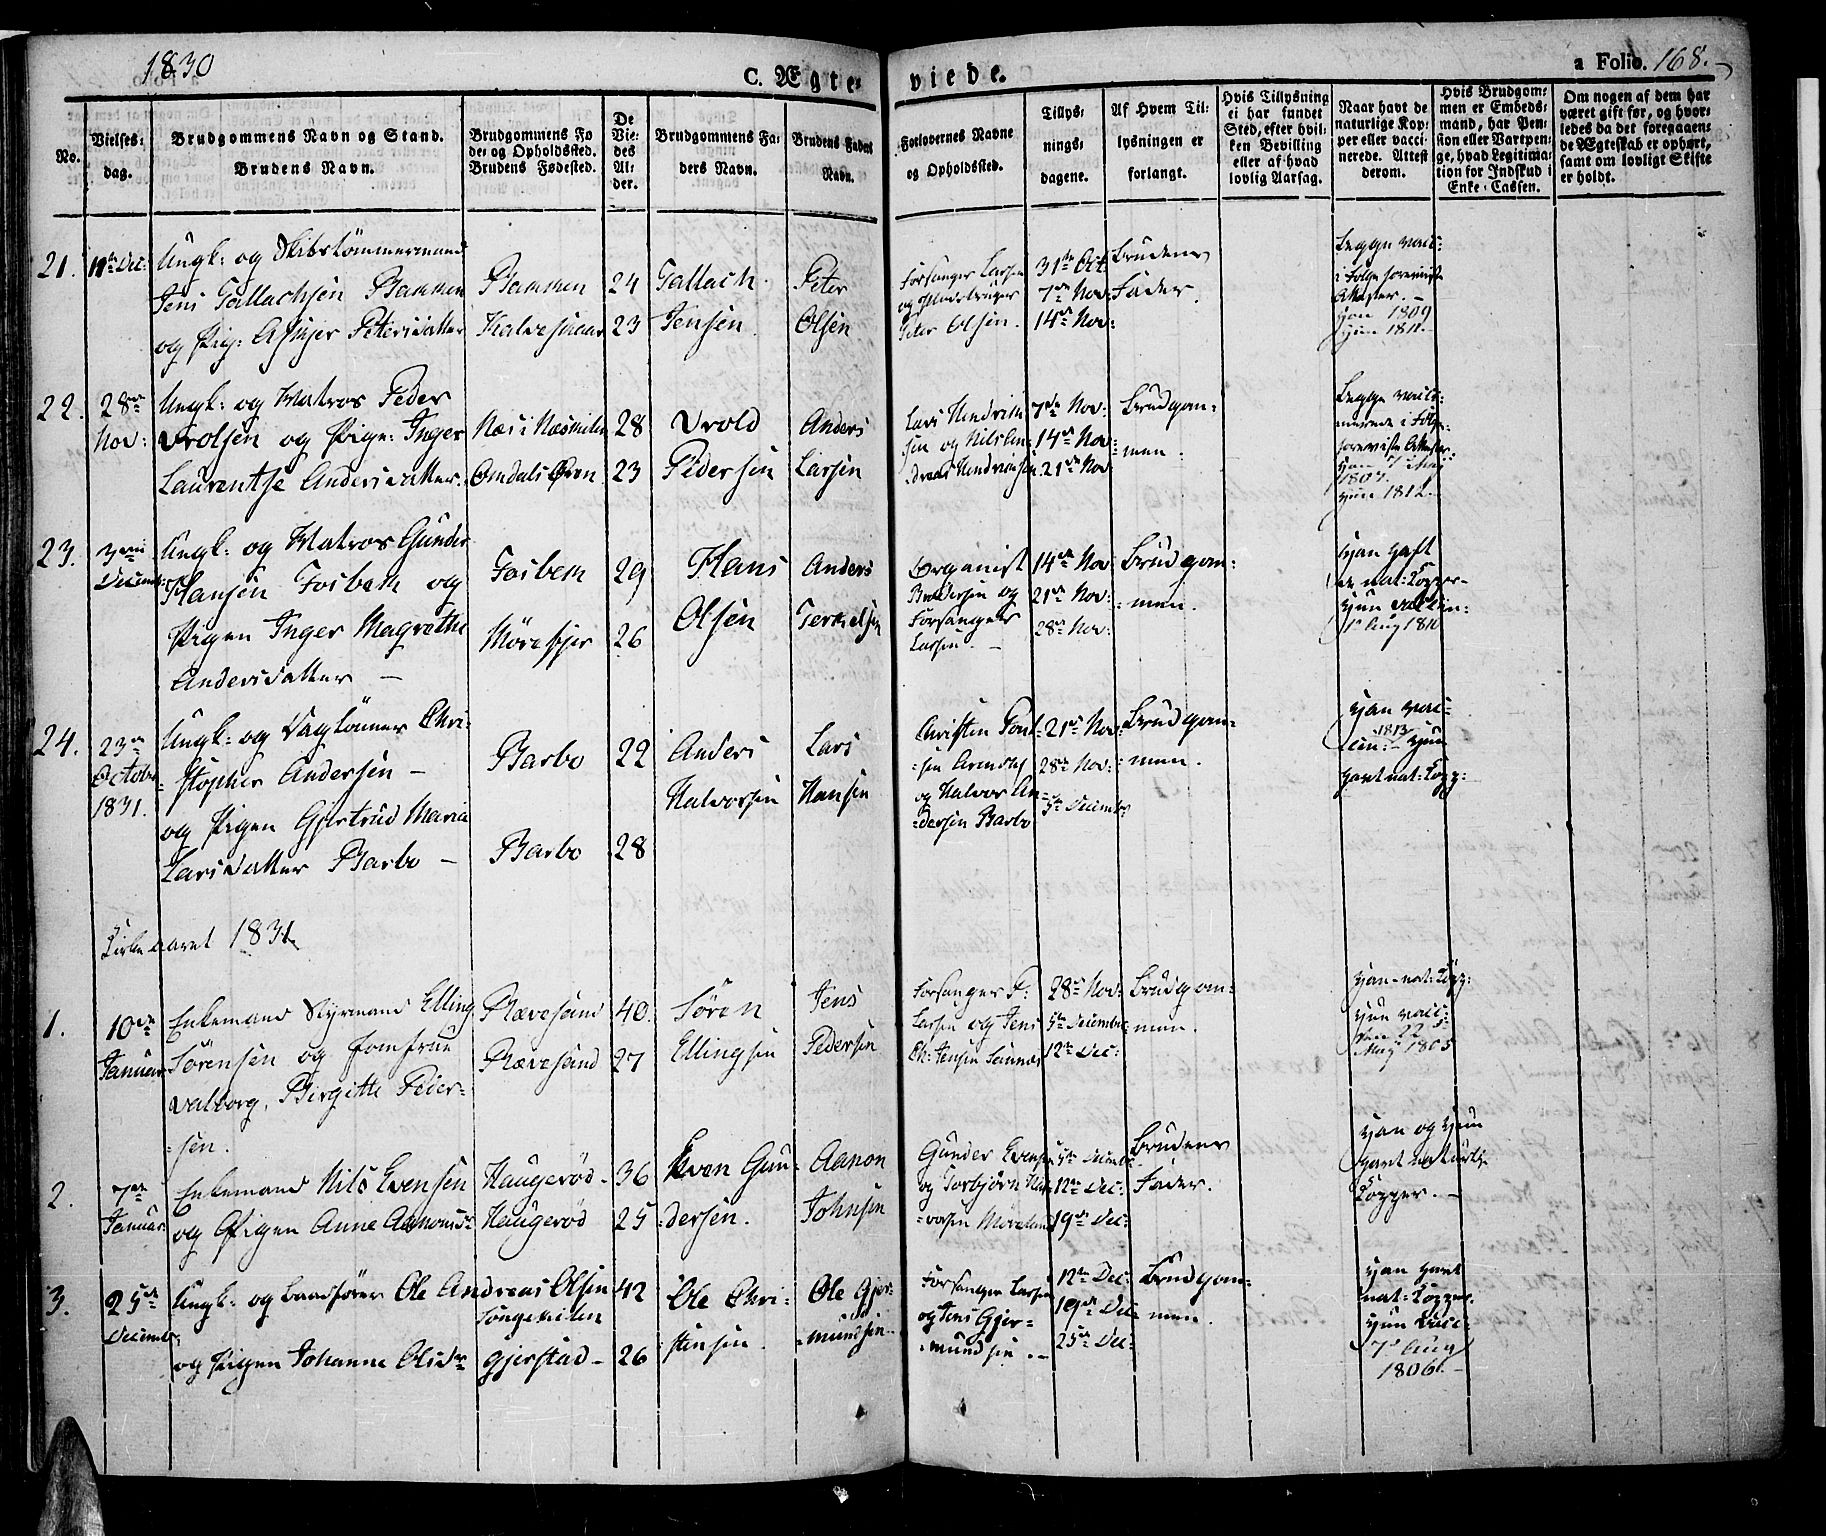 1830
C. Ægte-
viede.
a Folio. 168.
No.
Vielses-
dag.
Brudgommens Navn og Stand.
Brudens Navn.
Brudgommens Fø
de- og Opholdssted.
Brudens Fødested.
De
Vie-
des
Al-
der.
Brudgommens Fa-
ders Navn.
Brudens Faders
Navn.
Forlovernes Navne
og Opholdssted.
Tillys-
nings-
dagene.
Af Hvem Til-
lysningen er
forlangt.
Hvis Tillysning
ei har fundet
Sted, efter hvil-
ken Bevilling
eller af hvad
lovlig Aarsag.
Naar havt de
naturlige Kop-
per eller vacci-
nerede. Attest
derom.
Hvis Brudgom-
men er Embeds-
mand, har Pen-
sion eller Vartpen-
ge, hvad Legitima-
tion for Indskud i
Enke-Cassen.
Om nogen af dem har
været gift før, og hvor-
ledes da det foregaaen-
de Ægteskab er ophørt,
samt om lovligt Skifte
er holdt.
21.
Ungk: og Skibstømmermand
Jens Tallachsen
og Pig: Petersdatter
24
23
Tallach
Jensen.
Peter
Olsen
Forsanger Larsen
og
Peter Olsen.
31te Oct
7de Nov:
14de Nov:
Brudens
Fader.
Begge vacc:
i Følge foreviste
Attester. –
1809
1811.
22.
28de
Nov:
Ungk: og Matros Peder
Vrolsen og Pige: Inger
Laurentse Andersdatter.
Næs i Næskilen
Omdals Øren
28
23
Vrold
Pedersen
Anders
Larsen
Lars Hendrik-
sen og Nils An-
dreas Hendriksen
7de Nov:
14de Nov:
21de Nov
Brudgom-
men.
Begge vacci-
nerede i Følge
foreviste Attester
1807.
1812.
23.
3die
Decemb:
Ungk: og Matros Gunder
Hansen Fosbek og
Pigen Inger Magrethe
Andersdatter –
Fosbek
Mørefjer
29
26
Hans
Olsen
Anders
Terkelsen
Organist
Pedersen og
Forsanger
Larsen. –
14de Nov:
21de Nov:
28de Nov:
Brudgom-
men.
Han haft
de nat: Kopper-
Hun vaccin:
Aug 1811
24.
23de
October
1831.
Ungk: og Daglønner Chri-
stopher Andersen –
og Pigen Gjertrud Maria
Larsdatter Barbo –
Barbo
Barbo
22
28
Anders
Halvorsen
Lars
Hansen
Christen
og Halvor An-
dersen Barbo
21de Nov:
28de Nov:
5te Decembr
Brudgom-
men.
Han vac-
1813
cin: – Hun
havt nat: Kopp:
Kirkeaaret 1831
1.
10de
Januar
Enkemand Styrmand Elling
Sørensen og Jomfrue
Valborg Birgitte Peder-
sen.
Rævesand
Rævesand
40.
27
Søren
Ellingsen
Jens
Pedersen
Forsanger P:
Larsen og Jens
Ch: Jensen
28de Nov:
5te Decembr
12te Dec:
Brudgom-
men.
Han – nat: Kopp:
Hun vacc:
den 22
1805
2.
7de
Januar
Enkemand Nils Evensen
og Pigen Anne Aanons
Haugerød
Haugerød
36
25
Even Gun-
dersen.
Aanon
Johnsen
Gunder Evensen
og Torbjørn Hal-
vorsen
5te Decembr
12te Dec:
19de Dec:
Brudens
Fader.
Han og Hun
havt naturlige
Kopper. –
3.
25de
Decembr
Ungk: og Baadfører Ole Andreas Olsen
og Pigen Johanne Olsdr
Songekilen
Gjerstad –
42
26
Ole Chri-
stensen.
Ole Gjer-
mundsen
Forsanger Larsen
og Jens Gjer-
mundsen. –
12te Dec:
19de Dec
25de Dec:
Brudgom-
men.
Han havt
nat: Kopper
Hun vacc:
7de Aug
1806. –